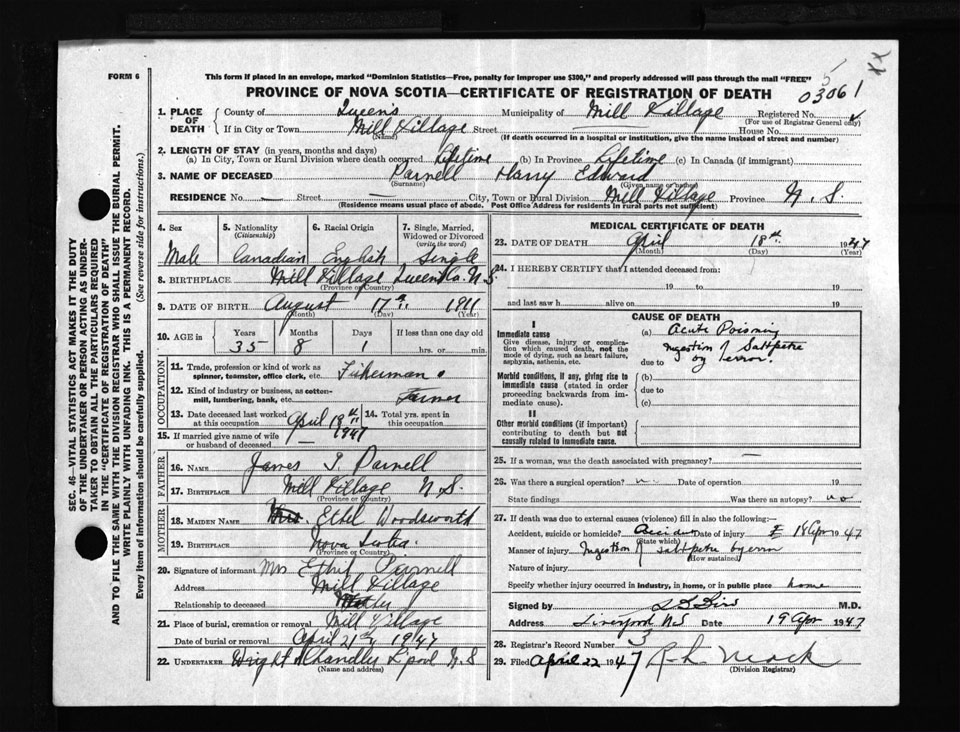 FORM 6
This form if placed in an envelope, marked "Dominion Statistics—Free, penalty for improper use $300," and properly addressed will pass through the mail "FREE"
PROVINCE OF NOVA SCOTIA—CERTIFICATE OF REGISTRATION OF DEATH
5
03061
xx
1. PLACE OF DEATH { County of Queens Municipality of Mill Village Registered No.
(For use of Registrar General only)
If in City or Town Mill Village Street House No.
(Name) (If death occurred in a hospital or institution, give the name instead of street and number)
2. LENGTH OF STAY (in years, months and days)
(a) In City, Town or Rural Division where death occurred Lifetime (b) In Province Lifetime (c) In Canada (if immigrant)
3. NAME OF DECEASED Parnell Harry Edward
(Surname) (Given name or names)
RESIDENCE No. — Street — City, Town or Rural Division Mill Village Province N. S.
(Residence means usual place of abode. Post Office Address for residents in rural parts not sufficient)
4. Sex 5. Nationality (Citizenship) 6. Racial Origin 7. Single, Married, Widowed or Divorced (write the word)
Male Canadian English Single
8. BIRTHPLACE Mill Village Queens Co. N.S.
(Province or Country)
9. DATE OF BIRTH August 17th 1911
(Month) (Day) (Year)
10. AGE in Years Months Days If less than one day old
35 8 1 hrs. or min.
OCCUPATION
11. Trade, profession or kind of work as spinner, teamster, office clerk, etc. Fisherman
12. Kind of industry or business, as cotton-mill, lumbering, bank, etc. Farmer
13. Date deceased last worked at this occupation April 18th 1947 14. Total yrs. spent in this occupation
15. If married give name of wife or husband of deceased —
FATHER
16. NAME James I. Parnell
17. BIRTHPLACE Mill Village N.S.
(Province or Country)
MOTHER
18. MAIDEN NAME Mrs. Ethel Woodsworth
19. BIRTHPLACE Nova Scotia
(Province or Country)
20. Signature of informant Mrs Ethel Parnell
Address Mill Village
Relationship to deceased Mother
21. Place of burial, cremation or removal Mill Village
Date of burial or removal April 21st 1947
22. UNDERTAKER Wright Chandler L'pool N.S
(Name and address)
MEDICAL CERTIFICATE OF DEATH
23. DATE OF DEATH April 18th 1947
(Month) (Day) (Year)
24. I HEREBY CERTIFY that I attended deceased from:
19 to 19
and last saw h alive on 19
CAUSE OF DEATH
I
Immediate cause (a) Acute Poisoning
Give disease, injury or complication which caused death, not the mode of dying, such as heart failure, asphyxia, asthenia, etc.
due to Ingestion of Saltpetre by error.
Morbid conditions, if any, giving rise to immediate cause (stated in order proceeding backwards from immediate cause). (b)
due to
(c)
II
Other morbid conditions (if important) contributing to death but not causally related to immediate cause.
25. If a woman, was the death associated with pregnancy? —
26. Was there a surgical operation? Date of operation 19
State findings Was there an autopsy? no
27. If death was due to external causes (violence) fill in also the following:—
Accident, suicide or homicide? Accident Date of injury 18 Apr 1947
(State which)
Manner of injury Ingestion of saltpetre by error
(How sustained)
Nature of injury
Specify whether injury occurred in industry, in home, or in public place home
Signed by M.D.
Address Liverpool N.S Date 19 Apr 1947
28. Registrar's Record Number 3
29. Filed April 22 1947 R. L. Mack
(Division Registrar)
SEC. 46—VITAL STATISTICS ACT MAKES IT THE DUTY
OF THE UNDERTAKER OR PERSON ACTING AS UNDER-
TAKER TO OBTAIN ALL THE PARTICULARS REQUIRED
IN THE "CERTIFICATE OF REGISTRATION OF DEATH"
AND TO FILE THE SAME WITH THE DIVISION REGISTRAR WHO SHALL ISSUE THE BURIAL PERMIT.
WRITE PLAINLY WITH UNFADING INK. THIS IS A PERMANENT RECORD.
Every item of information should be carefully supplied. (See reverse side for instructions.)